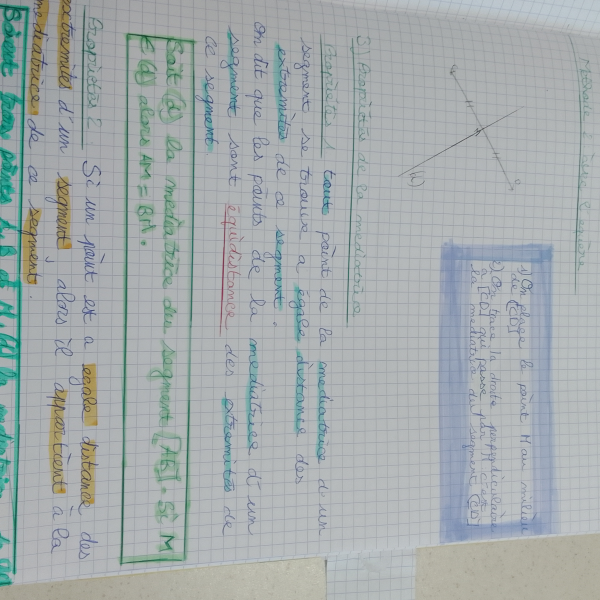 Méthode 2 : avec l'équerre
1) On place le point M au milieu
de [CD]
2) On trace la droite perpendiculaire
à [CD] qui passe par M c'est
la médiatrice du segment [CD]
3) Propriétés de la médiatrice
Propriétés 1 tout point de la mediatrice d'un
segment se trouve a égale distance des
extremités de ce segment.
On dit que les points de la mediatrice d'un
segment sont équidistance des extremités de
ce segment.
Soit (d) la mediatrice du segment [AB]. Si M
∈ (d) alors AM = BM.
Propriétés 2 : Si un point est a egale distance des
extremités d'un segment, alors il appartient à la
mediatrice de ce segment.
Soient trois points A, B et M, (d) la mediatrice